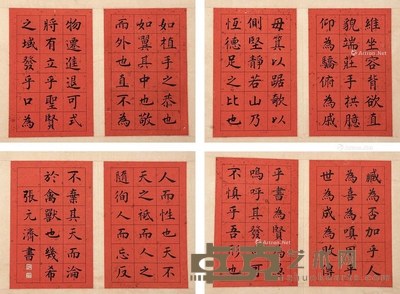 維坐容背欲直
貌端莊手拱臆
仰為驕俯為戚
毋箕以踞欹以
側堅靜若山乃
恆德足之比也
如植手之恭也
如翼其中也敬
而外也直不為
物遷進退可式
將有立乎聖賢
之域發乎口為
臧為否加乎人
為喜為嗔用乎
世為成為敗傳
乎書為賢為
嗚呼其發也可
不慎乎吾形也
人而性也天不
天之祗而人之
隨徇人而忘反
不棄其天而淪
於禽獸也幾希
張元濟書